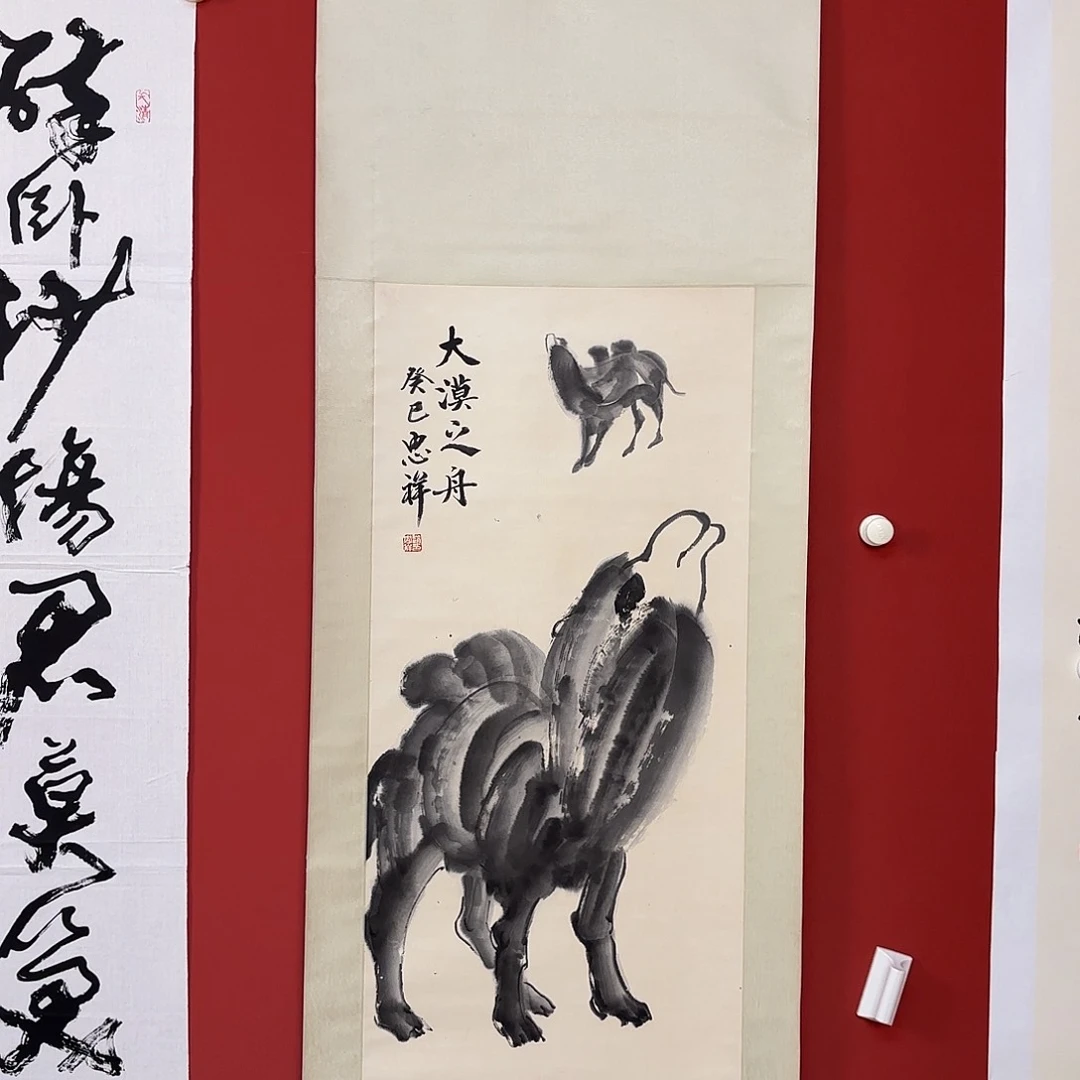 大漠之舟
癸巳忠祥
醉卧沙場君莫笑